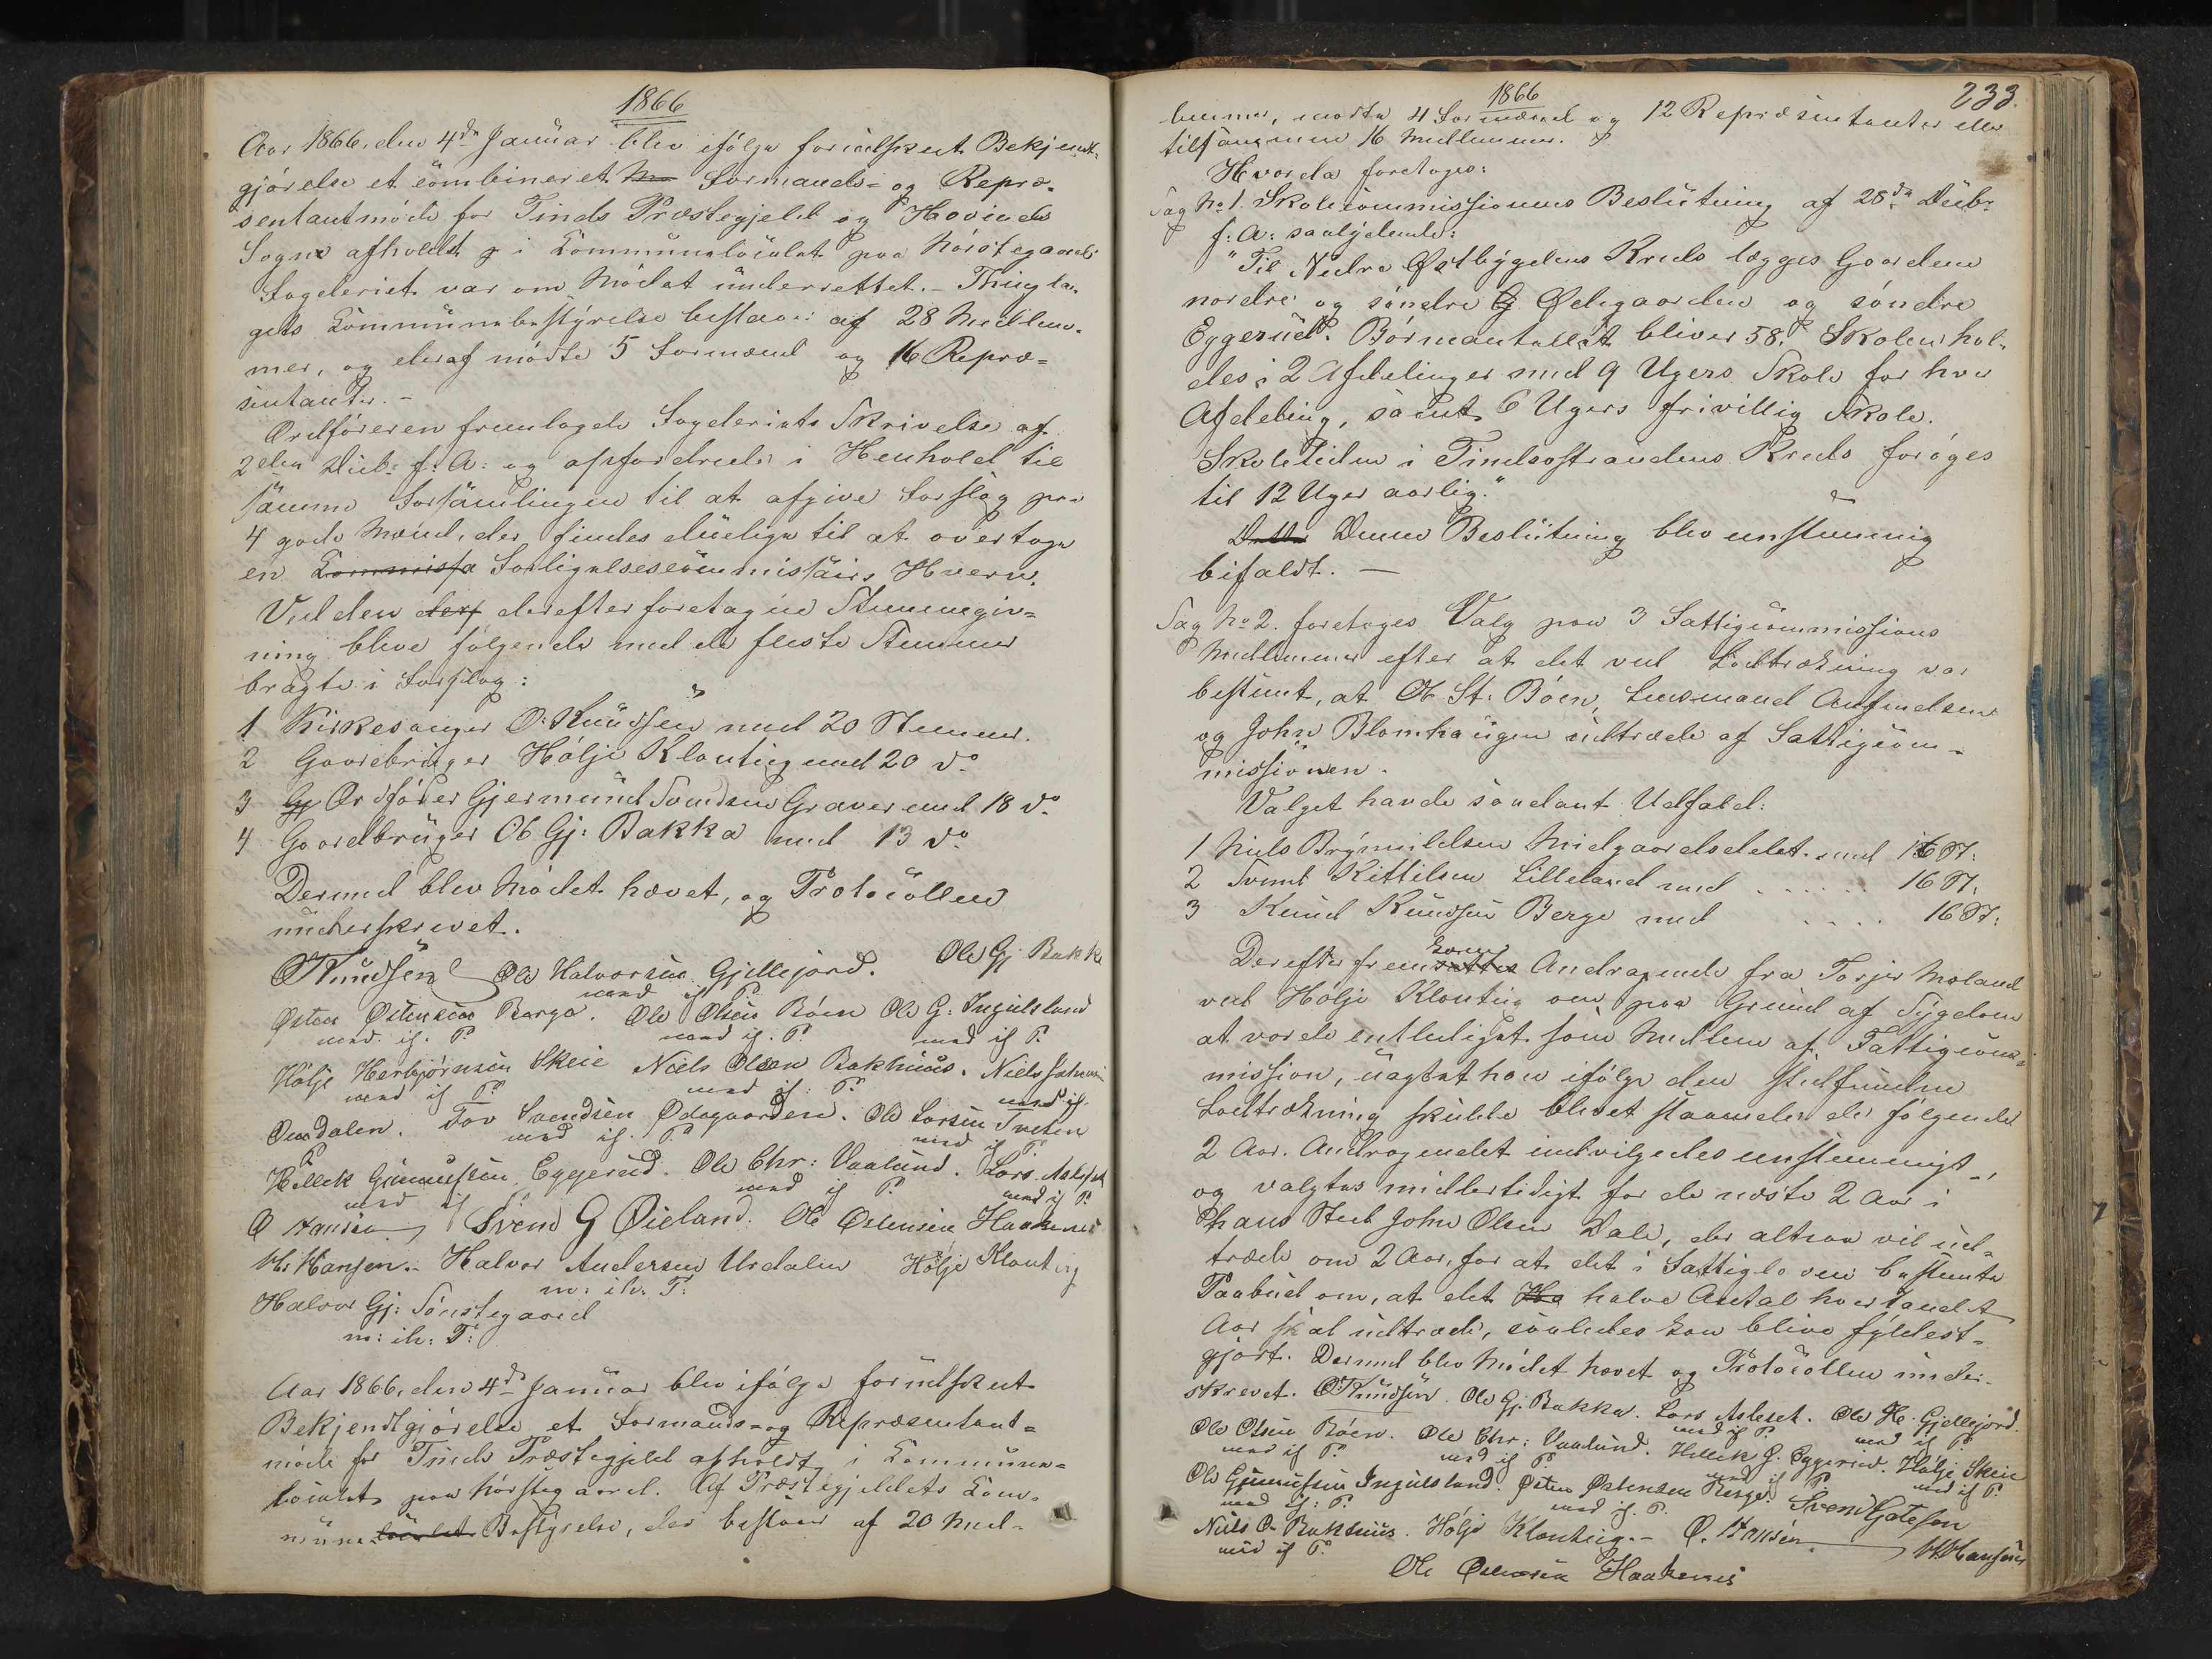 1866
Aar 1866, den 4de Januar blev ifølge forudskeet Bekjendt-
gjørelse et combineret Formands- og Repræ-
sentantmøde for Tinds Præstegjeld og Hovinds
Sogne afholdt i Communelocalet paa Hørstegaard.
Fogderiet var om Mødet underrettet. – Thingla-
gets Communebestyrelse bestaar af 28 Medlem-
mer, og deraf mødte 5 Formænd og 16 Repræ-
sentanter. –
Ordføreren fremlagde Fogderiets Skrivelse af
2den Decbr f: A: og opfordrede i Henhold til
samme Forsamlingen til at afgive Forslag paa
4 gode Mænd, der findes duelige til at overtage
en Commissa Forligelsescommissairs Hverv.
Ved den derf derefter foretagne Stemmegiv-
ning bleve følgende med de fleste Stemmer
bragte i Forslag:
1 Kirkesanger O. Knudsen med 20 Stemmer.
2 Gaardbruger Høljе Klonteig med 20 do
3 Gj Ordfører Gjermund Svendsen Graver med 18 do
4 Gaardbruger Ole Gj: Bakka med 13 do
Dermed blev Mødet hævet, og Protocollen
underskrevet.
OKnudsen Ole Halvorsen Gjellejord. Ole Gj. Bakka
med if P.
Østen Østensen Berge. Ole Olsen Bøen Ole G: Ingulsland
med. if. P. med if. P. med if P.
Hølje Herbjørnsen Skeie Niels Olsen Bakhuus. Niels
med if P. med if: P. med if
Omdalen. Tov Svendsen Ødegaarden. Ole Larsen Tveten
P. med if. P. med if P.
Hellek Gunnufsen Eggerud. Ole Chr: Vaalund. Lars Aslesen
med if med if P. med if P.
O Hansen Svend G Øieland. Ole Østensen Haakenes
H. Hansen. Halvor Andersen Urdalen Hølje Klonteig
m: ih. P:
Halvor Gj: Sønstegaard
m: ih: P:
Aar 1866, den 4de Januar blev ifølge forudskeet
Bekjendtgjørelse et Formands- og Repræsentant-
møde for Tinds Præstegjeld afholdt i Commune-
localet paa Hørstegaard. Af Præstegjeldets Com-
mune localet Bestyrelse, der bestaar af 20 Med-
1866
233.
lemmer, mødte 4 Formænd og 12 Repræsentanter eller
tilsammen 16 Medlemmer.
Hvorda foretoges:
Sag No 1. Skolecommissionens Beslutning af 28de Decbr
f: A: saalydende:
"Til Nedre Østbygdens Kreds lægges Gaardene
nordre og søndre Ødegaarden og søndre
Eggerud. Børneantallet bliver 58. Skolen hol-
des i 2 Afdelinger med 9 Ugers Skole for hver
Afdeling, samt 6 Ugers frivillig Skole.
Skoletiden i Tindsøstrandens Kreds forøges
til 12 Uger aarlig."
Denne Beslutning blev enstemmig
bifaldt. –
Sag No 2. foretoges Valg paa 3 Fattigcommissions
Medlemmer efter at det ved Lodtrækning var
bestemt, at Ole St: Bøen, Lensmand Anfindsen
og John Blomhaugen udtræde af Fattigcom-
missionen.
Valget havde saadant Udfald:
1 Niels Brynildsen Midgaardsdalet med 16 St:
2 Svend Kittilsen Lilleland med . . . . . . 16 St:
3 Knud Knudsen Berge med . . . . 16 St:
Derefter fremsattes kom Andragende fra Torjer Moland
ved Hølje Klonteig om paa Grund af Sygdom
at vorde entlediget som Medlem af Fattigcom-
mission, uagtet han ifølge den stedfundne
Lodtrækning skulde blevet staaende de følgende
2 Aar. Andragendet indvilgedes enstemmigt –,
og valgtes midlertidigt for de næste 2 Aar i
hans Sted John Olsen Dale, der altsaa vil ud-
træde om 2 Aar, for at det i Fattigloven bestemte
Paabud om, at det halve Antal hvertandet
Aar skal udtræde, saaledes kan blive fyldest-
gjort. Dermed blev Mødet hævet og Protocollen under-
skrevet. OKnudsen. Ole Gj. Bakka. Lars Aslesen. Ole H. Gjellejord.
med if P. med if P.
Ole Olsen Bøen. Ole Chr: Vaalund. Hellek G. Eggerud. Hølje Skeie
med if P. med if P. med if P. med if P.
Ole Gunnufsen Ingulsland. Østen Østensen Berge. Svend Gjøteson
med if: P. med if. P.
Niels O. Bakhuus. Hølje Klonteig. – O. Hansen H. Hansen
med if P.
Ole Østensen Haakenes